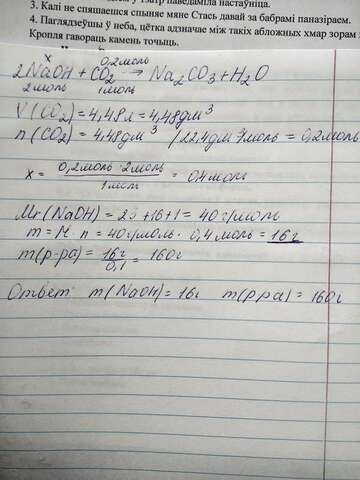 3. Калі не спяшаешся спыняе мяне Стась давай за бабрамі паназіраем.
4. Паглядзеўшы ў неба, цётка адзначае між такіх абложных хмар зорам
Кропля гавораць камень точыць.
x 0,2моль
2NaOH + CO2 → Na2CO3 + H2O
2моль 1моль
V(CO2) = 4,48л = 4,48дм³
n(CO2) = 4,48дм³ / 22,4дм³/моль = 0,2моль
x = 0,2моль · 2моль / 1моль = 0,4моль
Mr(NaOH) = 23 + 16 + 1 = 40 г/моль
m = M · n = 40г/моль · 0,4моль = 16г
m(р-ра) = 16г / 0,1 = 160г
Ответ: m(NaOH) = 16г m(р-ра) = 160г